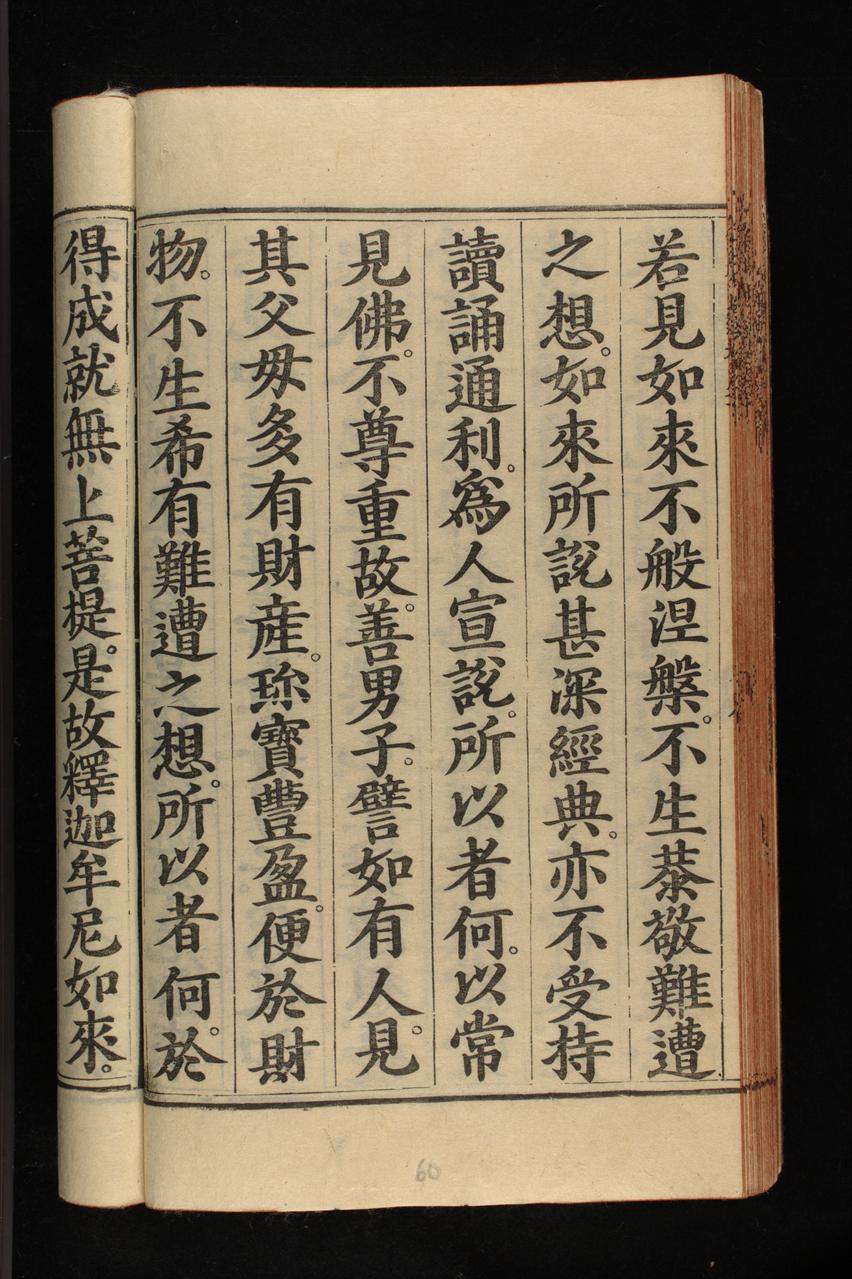 若見如來不般涅槃。不生恭敬難遭
之想。如來所說甚深經典。亦不受持
讀誦通利。爲人宣說。所以者何。以常
見佛。不尊重故。善男子。譬如有人。見
其父母多有財産。珎寶豐盈。便於財
物。不生希有難遭之想。所以者何。於
得成就無上菩提。是故釋迦牟尼如來。
60